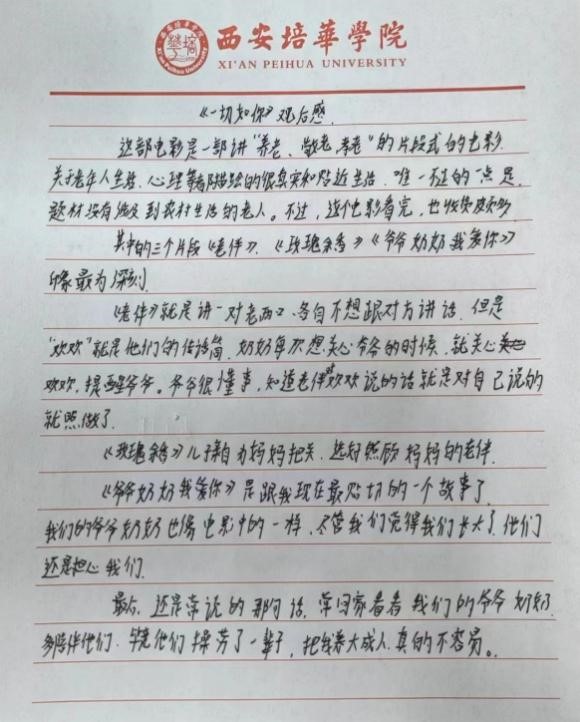 西安培華學院
XI'AN PEIHUA UNIVERSITY
《一切如你》观后感.
这部电影是一部讲“养老、敬老、孝老”的片段式的电影.
关于老年人生活、心理等都描绘的很真实和贴近生活.唯一不足的一点是,
题材没有涉及到农村生活的老人。不过,这个电影看完,也收获颇多
其中的三个片段《老伴》、《玫瑰余香》《爷爷奶奶我爱你》
印象最为深刻.
《老伴》就是讲一对老两口、各自不想跟对方讲话,但是
“欢欢”就是他们的传话筒,奶奶每次想关心爷爷的时候,就关心
欢欢,提醒爷爷。爷爷很懂事,知道老伴欢欢说的话就是对自己说的
就照做了.
《玫瑰余香》儿子亲自为妈妈把关,选好照顾妈妈的老伴.
《爷爷奶奶我爱你》是跟我现在最贴切的一个故事了.
我们的爷爷奶奶也像电影中的一样,尽管我们觉得我们长大了,他们
还是担心我们.
最后,还是常说的那句话,常回家看看我们的爷爷奶奶,
多陪伴他们.毕竟他们操劳了一辈子,把我养大成人,真的不容易。